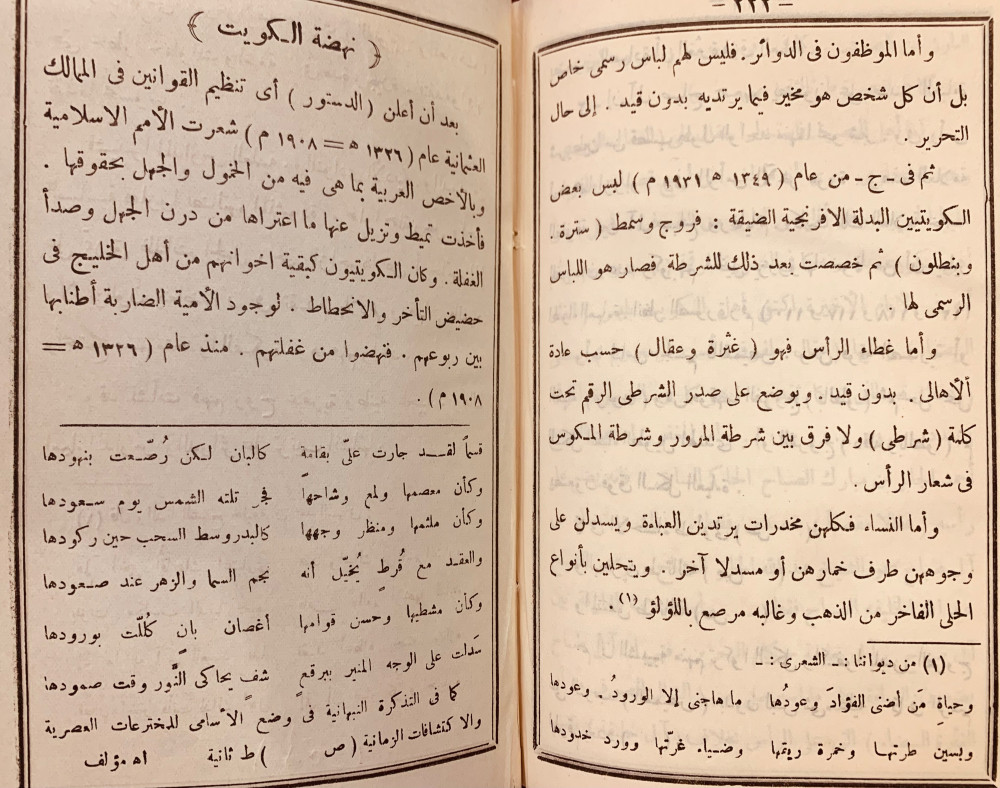 — ٢٢٢ —
وأما الموظفون فى الدوائر. فليس لهم لباس رسمى خاص
بل أن كل شخص هو مخير فيما يرتديه بدون قيد. إلى حال
التحرير.
ثم فى ـ ج ـ من عام (١٣٤٩ ه ١٩٣١ م) لبس بعض
الكويتيين البدلة الافرنجية الضيقة: فروج وسمط (سترة.
وبنطلون) ثم خصصت بعد ذلك للشرطة فصار هو اللباس
الرسمى لها.
وأما غطاء الرأس فهو (غترة وعقال) حسب عادة
ألاهالى. بدون قيد. ويوضع على صدر الشرطى الرقم تحت
كلمة (شرطى) ولا فرق بين شرطة المرور وشرطة المكوس
فى شعار الرأس.
وأما النساء فكلهن مخدرات يرتدين العباءة ويسدلن على
وجوههن طرف خمارهن أو مسدلا آخر.. ويتحلين بأنواع
الحلى الفاخر من الذهب وغالبه مرصع باللؤلؤ (١).
(١) من ديواننا: ـ الشعرى: ـ
وحياةِ مَن أضنى الفؤادَ وعودُها ما هاجنى إلا الورودُ. وعودها
وبسين طرتها وخمرة ريقها وضياء غرتها وورد خدودها
﴿ نهضة الكويت ﴾
بعد أن أعلن (الدستور) أى تنظيم القوانين فى الممالك
العثمانية عام (١٣٢٦ ه = ١٩٠٨ م) شعرت الأمم الاسلامية
وبالأخص العربية بما هى فيه من الخمول والجهل بحقوقها.
فأخذت تميط وتزيل عنها ما اعتراها من درن الجهل وصدأ
الغفلة. وكان الكويتيون كبقية اخوانهم من أهل الخليج فى
حضيض التأخر والانحطاط. لوجود الأمية الضاربة أطنابها
بين ربوعهم. فنهضوا من غفلتهم. منذ عام (١٣٢٦ ه =
١٩٠٨ م).
قسماً لقد جارت علىّ بقامةٍ كالبان لكن رُصّعت بنهودها
وكأن معصمها ولمع وشاحها فجر تلته الشمس يوم سعودها
وكأن ملثمها ومنظر وجهها كالبدر وسط السحب حين ركودها
والعقد مع قُرطٍ يُخيّل أنه نجم السما والزهر عند صعودها
وكأن مشطيها وحسن قوامها أغصان بانٍ كُلّلت بورودها
سَدَات على الوجه المنير ببرقعٍ شفٍ يحاكى النَّور وقت صمودها
كما فى التذكرة النبهانية فى وضع الأسامى للمخترعات العصرية
والاكتشافات الزمانية (ص ) ط ثانية اه مؤلف